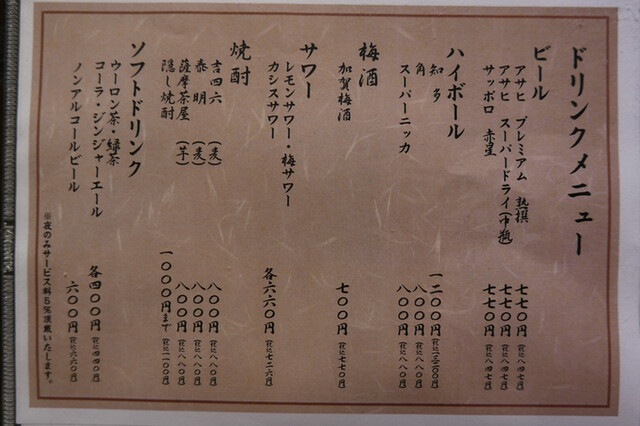 ドリンクメニュー
ビール
アサヒ プレミアム 熟撰 七七〇円(税込八四七円)
アサヒ スーパードライ(中瓶) 七七〇円(税込八四七円)
サッポロ 赤星 七七〇円(税込八四七円)
ハイボール
知多 一二〇〇円(税込一三二〇円)
角 八〇〇円(税込八八〇円)
スーパーニッカ 八〇〇円(税込八八〇円)
梅酒
加賀梅酒 七〇〇円(税込七七〇円)
サワー
レモンサワー・梅サワー
カシスサワー 各六六〇円(税込七二六円)
焼酎
吉四六 (麦) 八〇〇円(税込八八〇円)
泰明 (麦) 八〇〇円(税込八八〇円)
薩摩茶屋 (芋) 八〇〇円(税込八八〇円)
隠し焼酎 一〇〇〇円まで(税込一一〇〇円)
ソフトドリンク
ウーロン茶・緑茶
コーラ・ジンジャーエール 各四〇〇円(税込四四〇円)
ノンアルコールビール 六〇〇円(税込六六〇円)
※夜のみサービス料5%頂戴いたします。